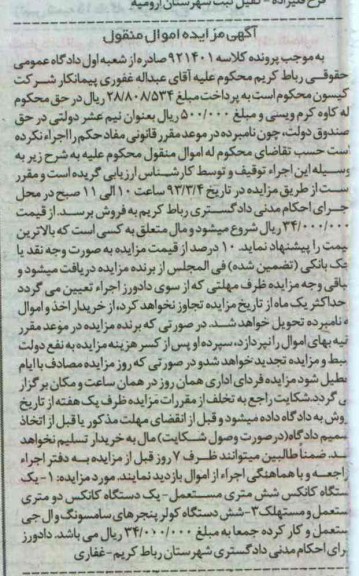 فرخ قلیزاده - کفیل ثبت شهرستان ارومیه
آگهی مزایده اموال منقول
به موجب پرونده کلاسه ۹۲۱۴۰۱ صادره از شعبه اول دادگاه عمومی
حقوقی رباط کریم محکوم علیه آقای عبداله غفوری پیمانکار شرکت
کیسون محکوم است به پرداخت مبلغ ۲۸/۸۰۸/۵۳۴ ریال در حق محکوم
له کاوه کرم ویسی و مبلغ ۵۰۰/۰۰۰ ریال بعنوان نیم عشر دولتی در حق
صندوق دولت، چون نامبرده در موعد مقرر قانونی مفاد حکم را اجراء نکرده
است حسب تقاضای محکوم له اموال منقول محکوم علیه به شرح زیر به
وسیله این اجراء توقیف و توسط کارشناس ارزیابی گردیده است و مقرر
ست از طریق مزایده در تاریخ ۹۳/۳/۴ ساعت ۱۰ الی ۱۱ صبح در محل
جرای احکام مدنی دادگستری رباط کریم به فروش برسد. از قیمت
۳۴/۰۰۰/۰۰۰ ریال شروع میشود و مال متعلق به کسی است که بالاترین
یمت را پیشنهاد نماید. ۱۰ درصد از قیمت مزایده به صورت وجه نقد یا
چک بانکی (تضمین شده) فی المجلس از برنده مزایده دریافت میشود و
باقی وجه مزایده ظرف مهلتی که از سوی دادورز اجراء تعیین می گردد
حداکثر یک ماه از تاریخ مزایده تجاوز نخواهد کرد، از خریدار اخذ و اموال
ه نامبرده تحویل خواهد شد. در صورتی که برنده مزایده در موعد مقرر
قیه بهای اموال را نپردازد، سپرده او پس از کسر هزینه مزایده به نفع دولت
ضبط و مزایده تجدید خواهد شد و در صورتی که روز مزایده مصادف با ایام
عطیل شود مزایده فردای اداری همان روز در همان ساعت و مکان برگزار
ی گردد. شکایت راجع به تخلف از مقررات مزایده ظرف یک هفته از تاریخ
روش به دادگاه داده میشود و قبل از انقضای مهلت مذکور یا قبل از اتخاذ
صمیم دادگاه (در صورت وصول شکایت) مال به خریدار تسلیم نخواهد
شد. ضمناً طالبین میتوانند ظرف ۷ روز قبل از مزایده به دفتر اجراء
راجعه و با هماهنگی اجراء از اموال بازدید نمایند. مورد مزایده: ۱- یک
ستگاه کانکس شش متری مستعمل- یک دستگاه کانکس دو متری
ستعمل و مستهلک ۳- شش دستگاه کولر پنجره‌ای سامسونگ وال جی
ستعمل و کار کرده جمعا به مبلغ ۳۴/۰۰۰/۰۰۰ ریال می باشد. دادورز
جرای احکام مدنی دادگستری شهرستان رباط کریم- غفاری